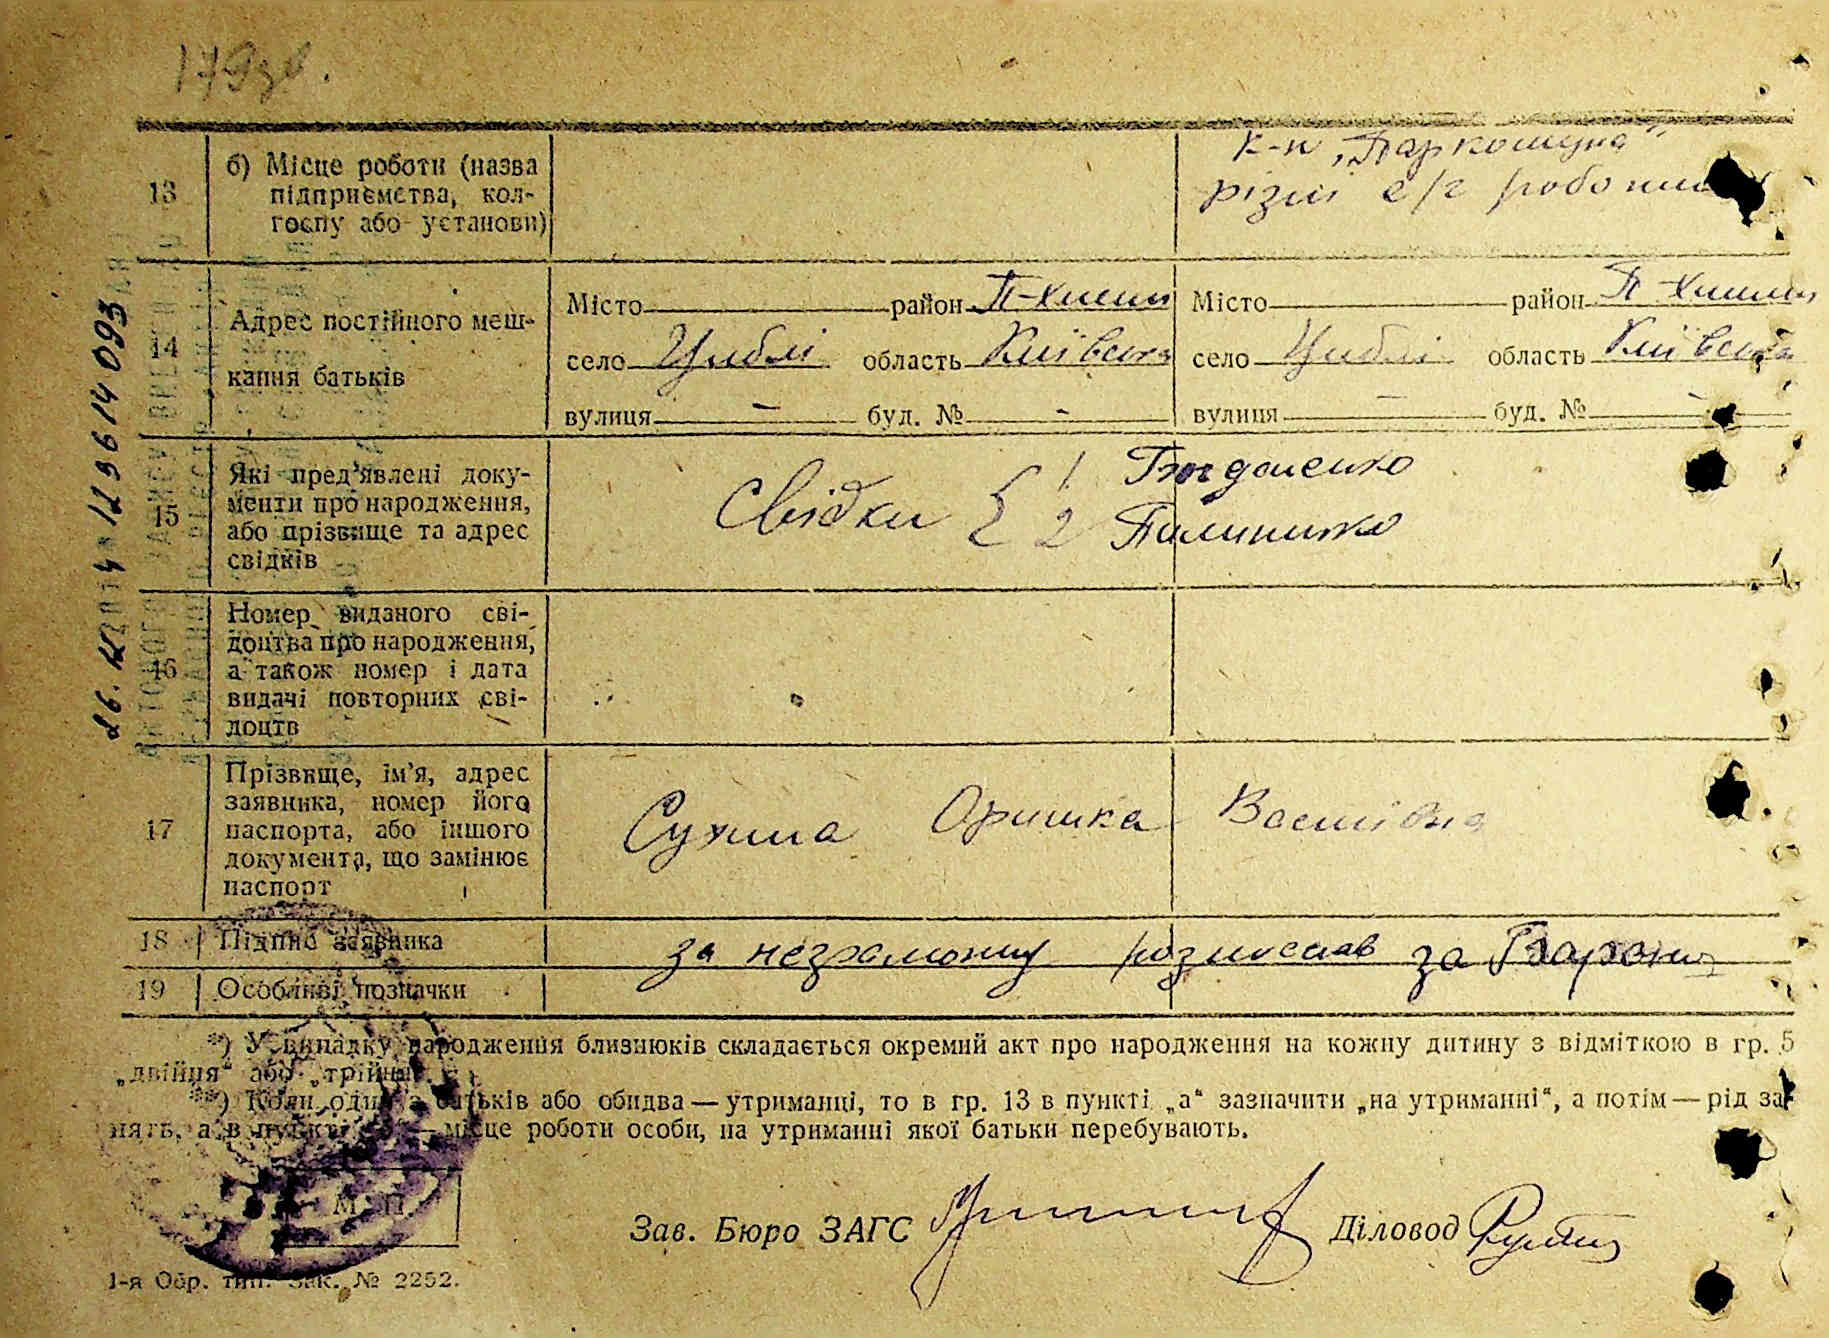 179зв.
13
б) Місце роботи (назва
підприємства, кол-
госпу або установи)
к-п „Паркомуна"
різні с/г роботи
14
Адрес постійного меш-
кання батьків
Місто район П-Хмель
село Циблі область Київська
вулиця - буд. № -
Місто район П-Хмель
село Циблі область Київська
вулиця - буд. № -
15
Які пред'явлені доку-
менти про народження,
або прізвище та адрес
свідків
Свідки { 1
2
16
Номер виданого сві-
доцтва про народження,
а також номер і дата
видачі повторних сві-
доцтв
17
Прізвище, ім'я, адрес
заявника, номер його
паспорта, або іншого
документа, що замінює
паспорт
Сухина Оришка Василівна
18
Підпис заявника
за незрамотну розписав за
19
Особливі позначки
*) У випадку народження близнюків складається окремий акт про народження на кожну дитину з відміткою в гр. 5
„двійця" або „трійця".
**) Коли один з батьків або обидва — утриманці, то в гр. 13 в пункті „а" зазначити „на утриманні", а потім — рід за-
нять, а в пункті — місце роботи особи, на утриманні якої батьки перебувають.
М. П.
Зав. Бюро ЗАГС
Діловод
1-я Обр. тип. Зак. № 2252.